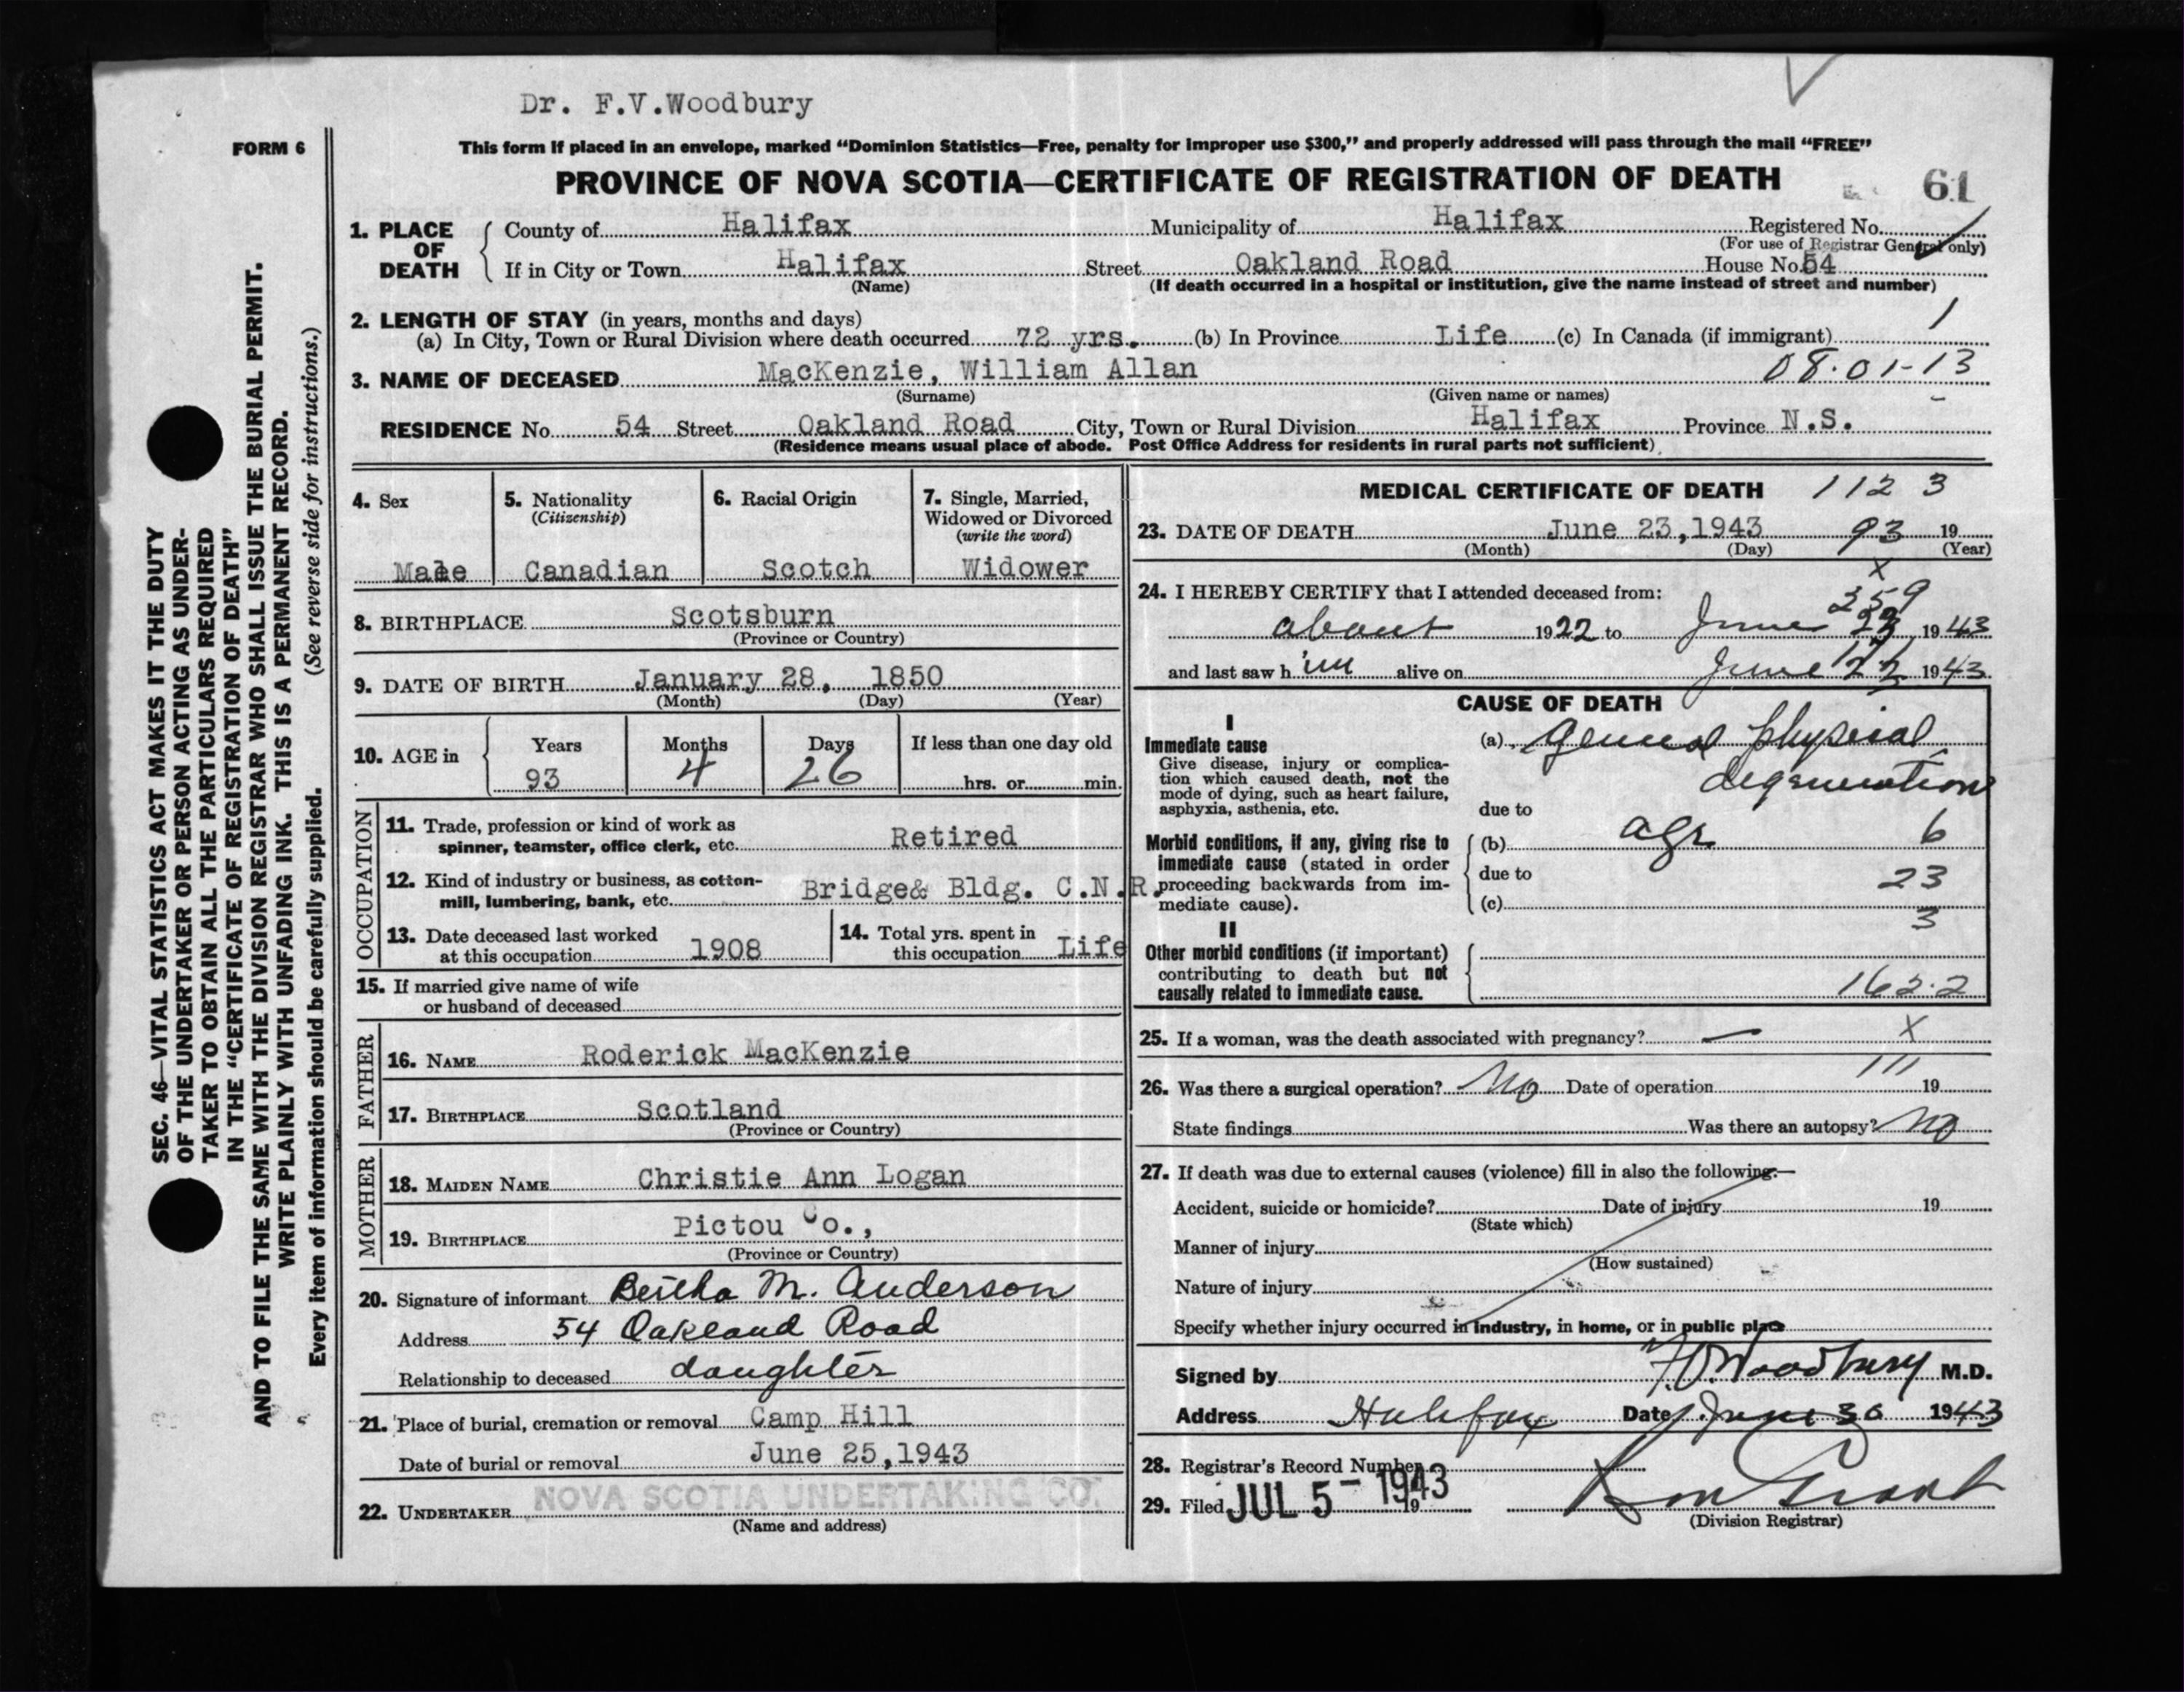 Dr. F.V.Woodbury
FORM 6
This form if placed in an envelope, marked “Dominion Statistics—Free, penalty for improper use $300,” and properly addressed will pass through the mail “FREE”
PROVINCE OF NOVA SCOTIA—CERTIFICATE OF REGISTRATION OF DEATH
61
1. PLACE OF DEATH
County of Halifax Municipality of Halifax Registered No.
(For use of Registrar General only)
If in City or Town Halifax Street Oakland Road House No. 54
(Name) (If death occurred in a hospital or institution, give the name instead of street and number)
2. LENGTH OF STAY (in years, months and days)
1
(a) In City, Town or Rural Division where death occurred 72 yrs. (b) In Province Life (c) In Canada (if immigrant)
3. NAME OF DECEASED MacKenzie, William Allan 08.01-13
(Surname) (Given name or names)
RESIDENCE No. 54 Street Oakland Road City, Town or Rural Division Halifax Province N.S.
(Residence means usual place of abode. Post Office Address for residents in rural parts not sufficient)
4. Sex
Male
5. Nationality
(Citizenship)
Canadian
6. Racial Origin
Scotch
7. Single, Married,
Widowed or Divorced
(write the word)
Widower
8. BIRTHPLACE Scotsburn
(Province or Country)
9. DATE OF BIRTH January 28, 1850
(Month) (Day) (Year)
10. AGE in
Years Months Days If less than one day old
93 4 26 hrs. or min.
OCCUPATION
11. Trade, profession or kind of work as
spinner, teamster, office clerk, etc. Retired
12. Kind of industry or business, as cotton-
mill, lumbering, bank, etc. Bridge& Bldg. C.N.R.
13. Date deceased last worked
at this occupation 1908
14. Total yrs. spent in
this occupation Life
15. If married give name of wife
or husband of deceased
FATHER
16. NAME Roderick MacKenzie
17. BIRTHPLACE Scotland
(Province or Country)
MOTHER
18. MAIDEN NAME Christie Ann Logan
19. BIRTHPLACE Pictou Co.,
(Province or Country)
20. Signature of informant Bertha M. Anderson
Address 54 Oakland Road
Relationship to deceased daughter
21. Place of burial, cremation or removal Camp Hill
Date of burial or removal June 25,1943
22. UNDERTAKER NOVA SCOTIA UNDERTAKING CO.
(Name and address)
MEDICAL CERTIFICATE OF DEATH 112 3
23. DATE OF DEATH June 23,1943 93 19
(Month) (Day) (Year)
x
24. I HEREBY CERTIFY that I attended deceased from: 359
about 1922 to June 23, 1943
and last saw him alive on June 22 1943
CAUSE OF DEATH
I
Immediate cause
Give disease, injury or complica-
tion which caused death, not the
mode of dying, such as heart failure,
asphyxia, asthenia, etc.
(a) General physical
degeneration
due to
Morbid conditions, if any, giving rise to
immediate cause (stated in order
proceeding backwards from im-
mediate cause).
(b) age 6
due to 23
(c)
3
II
Other morbid conditions (if important)
contributing to death but not
causally related to immediate cause.
162.2
25. If a woman, was the death associated with pregnancy? — X
111
26. Was there a surgical operation? No Date of operation 19
State findings Was there an autopsy? No
27. If death was due to external causes (violence) fill in also the following:—
Accident, suicide or homicide? Date of injury 19
(State which)
Manner of injury
(How sustained)
Nature of injury
Specify whether injury occurred in industry, in home, or in public place
Signed by F.V.Woodbury M.D.
Address Halifax Date June 30 1943
28. Registrar's Record Number
29. Filed JUL 5 - 1943 19
(Division Registrar)
SEC. 46—VITAL STATISTICS ACT MAKES IT THE DUTY
OF THE UNDERTAKER OR PERSON ACTING AS UNDER-
TAKER TO OBTAIN ALL THE PARTICULARS REQUIRED
IN THE “CERTIFICATE OF REGISTRATION OF DEATH”
AND TO FILE THE SAME WITH THE DIVISION REGISTRAR WHO SHALL ISSUE THE BURIAL PERMIT.
WRITE PLAINLY WITH UNFADING INK. THIS IS A PERMANENT RECORD.
Every item of information should be carefully supplied. (See reverse side for instructions.)